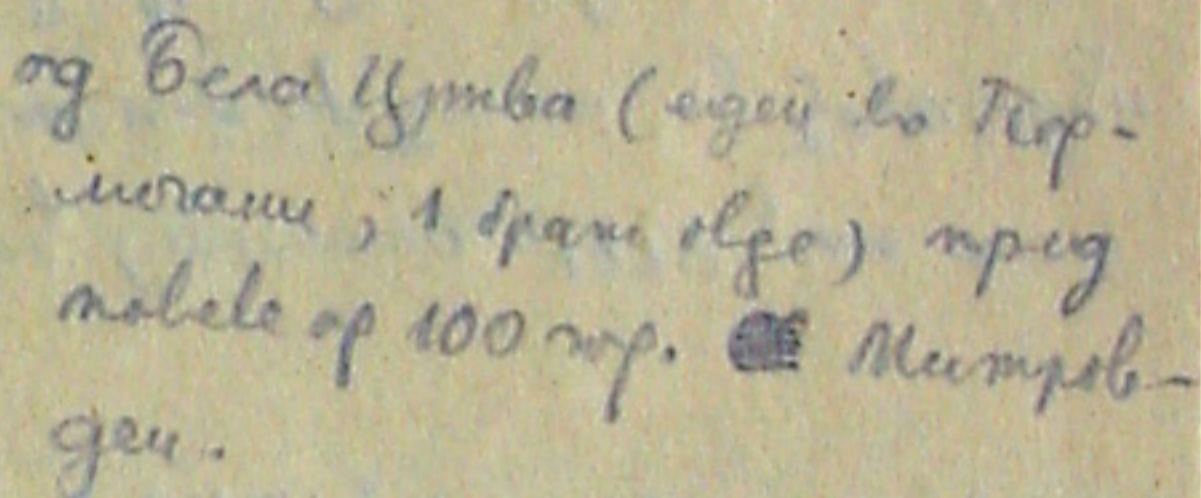 од Бела Црква (еден во Тор-
мочани, 1 брат овде) пред
повеќе од 100 год. Митров-
ден.